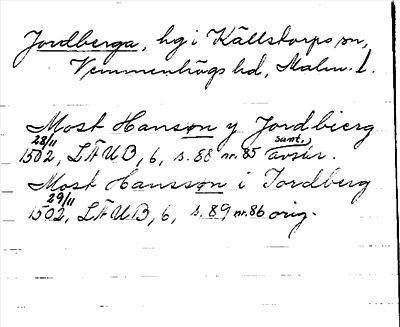 Jordberga, hg i Källstorps sn,
Vemmenhögs hd, Malm. l.
Most Hanson y Jordbierg
28/11 1502, LÄUB, 6, s. 88 nr. 85 samt. avskr.
Most Hansson i Jordberg
29/11 1502, LÄUB, 6, s. 89 nr. 86 orig.